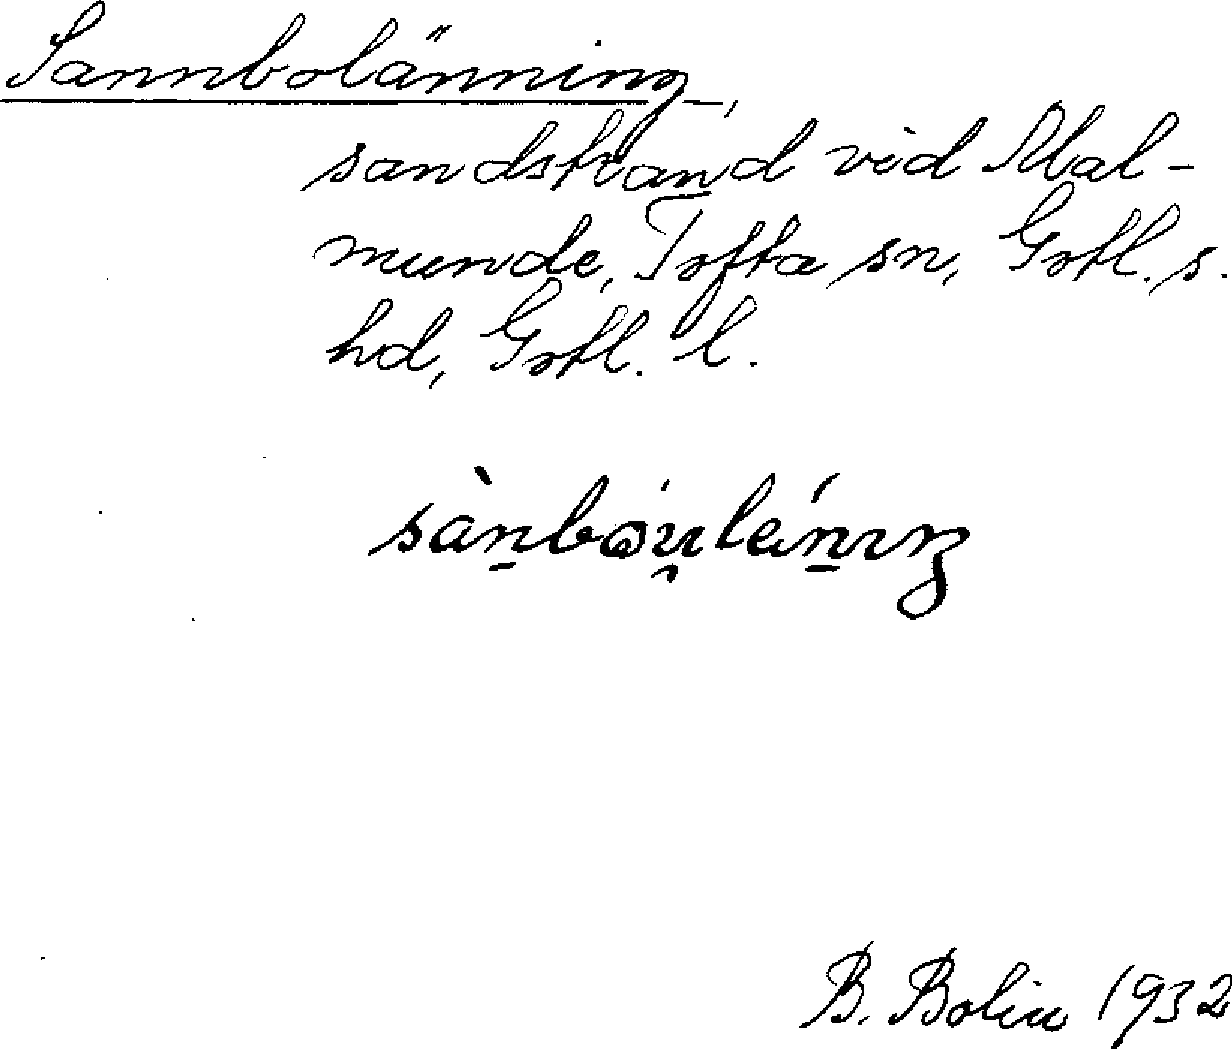 Sannbolänning,
sandstrand vid Mal-
munde, Tofta sn, Gotl. s.
hd, Gotl. l.
B. Bolin 1932